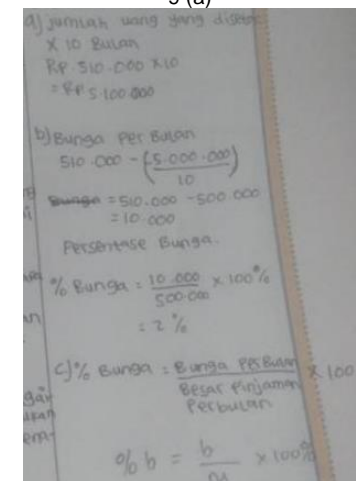 9 (a)
a) Jumlah uang yang disetor
X 10 Bulan
RP. 510.000 X 10
= RP 5.100.000
b) Bunga Per Bulan
510.000 - (5.000.000/10)
= 510.000 - 500.000
= 10.000
Persentase Bunga.
% Bunga = 10.000/500.000 x 100%
= 2 %
c) % Bunga = Bunga PerBulan/Besar Pinjaman Perbulan X 100
% b = b/M x 100%